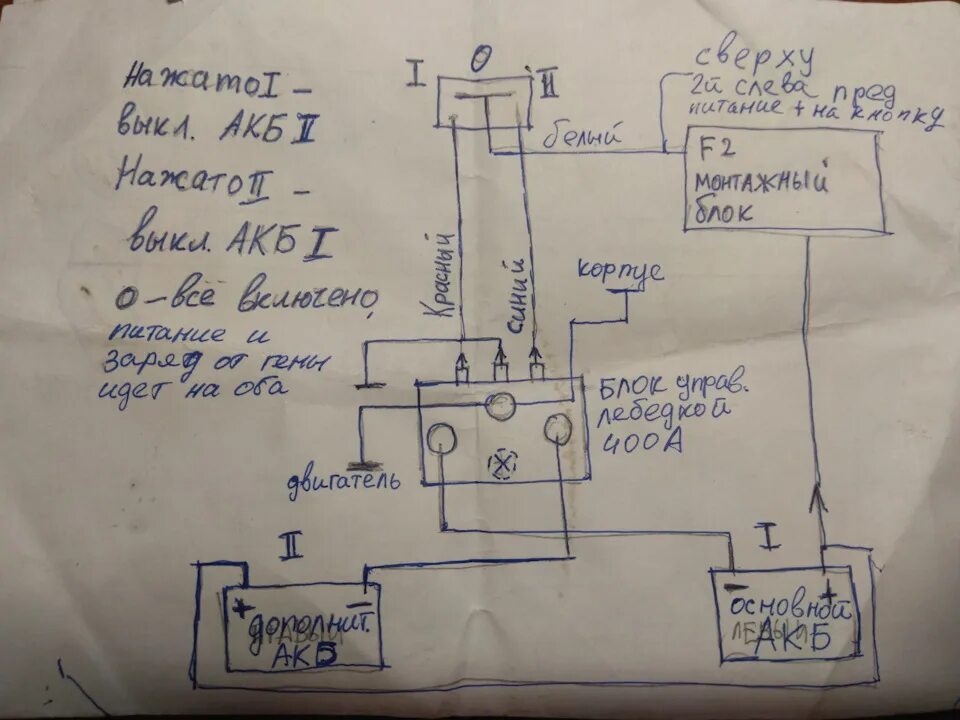 Нажато I –
выкл. АКБ II
Нажато II –
выкл. АКБ I
0 – всё включено,
питание и
заряд от гены
идет на оба
I 0 II
белый
сверху
2й слева пред
питание + на кнопку
F2
монтажный
блок
Красный
синий
корпус
Блок управ.
лебедкой
400А
двигатель
II
+ –
дополнит.
АКБ
I
– +
основной
АКБ